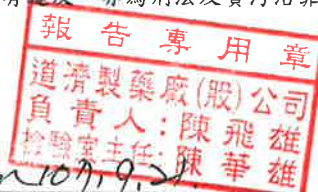 為刑法及貪污治罪
報告專用章
道濟製藥廠(股)公司
負責人：陳飛雄
檢驗室主任：陳華雄
107.9.21.